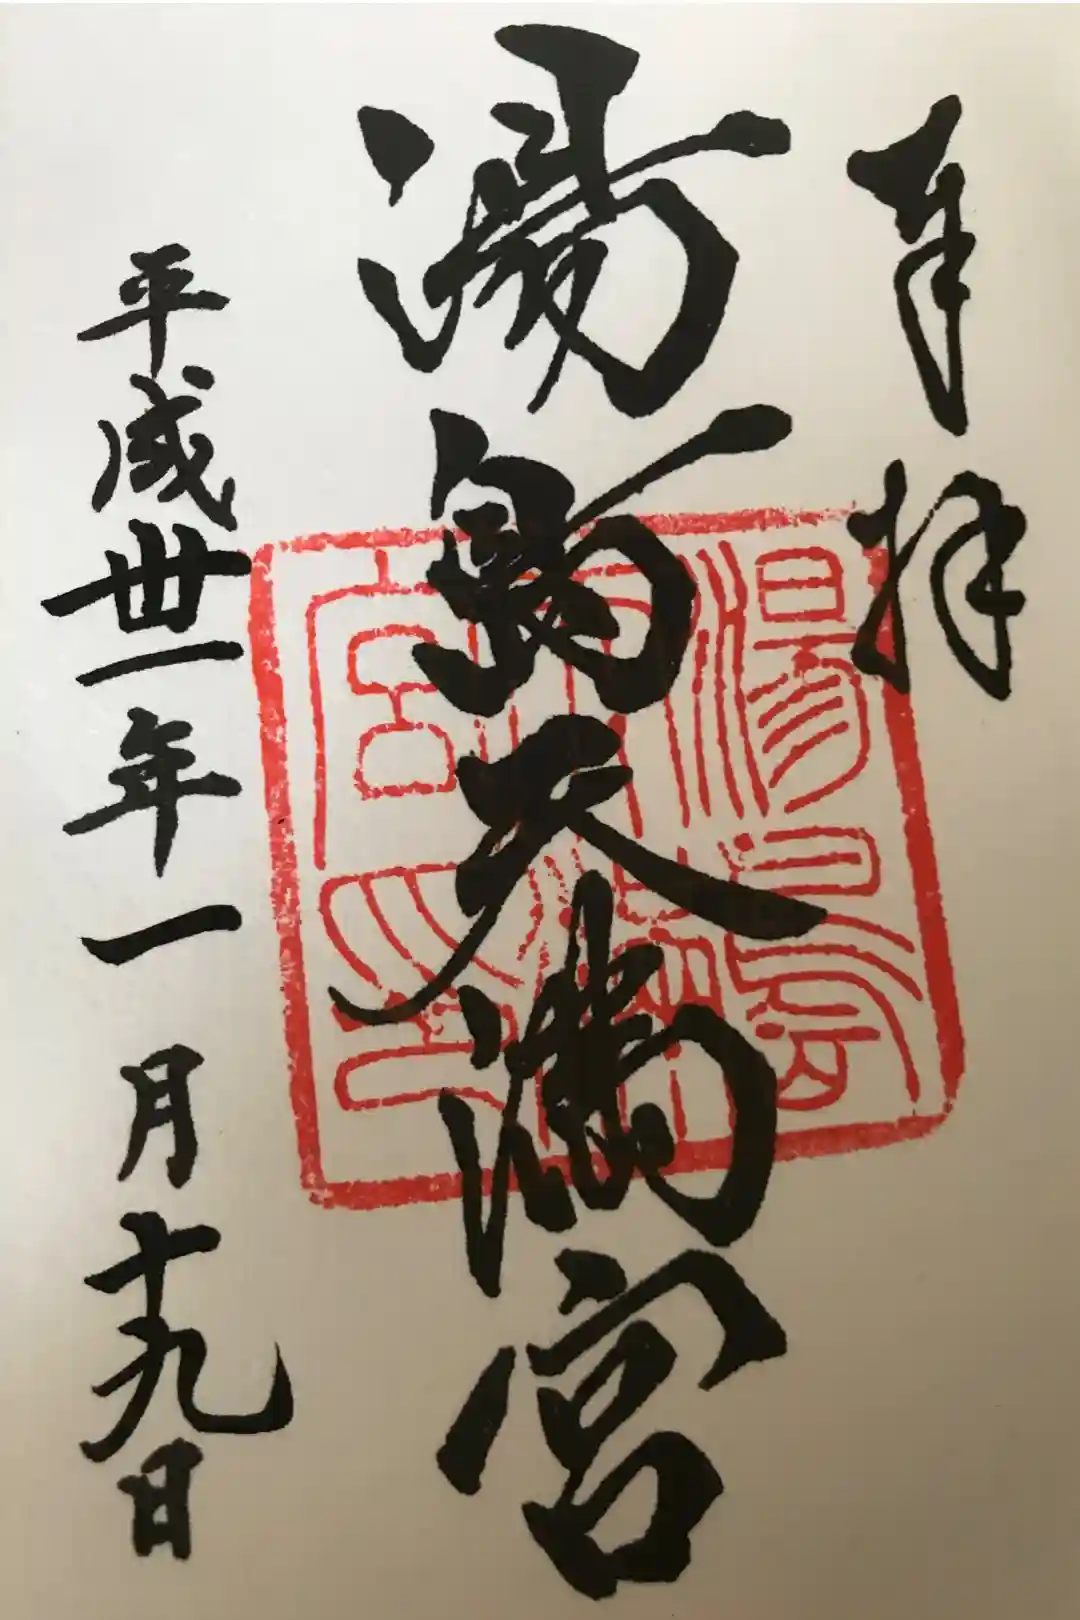 奉拝
湯島天満宮
平成卅一年一月十九日
湯島
天満
宮之印